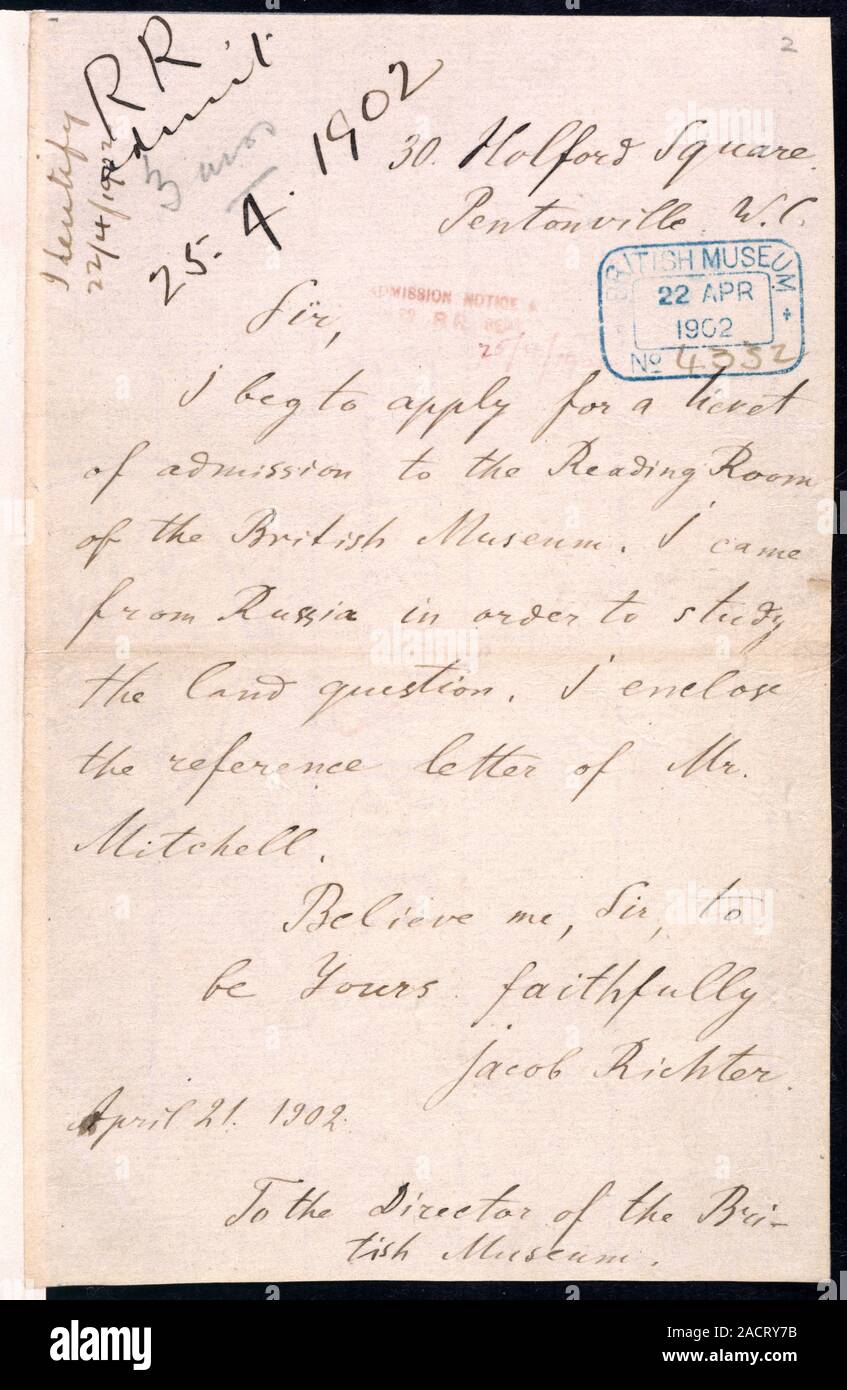 2
RR
admit
25. 4. 1902
Identify
22/4/1902
30. Holford Square.
Pentonville. W.C.
BRITISH MUSEUM
22 APR
1902
No 4332
ADMISSION NOTICE &
R R
25/4/
Sir,
I beg to apply for a ticket
of admission to the Reading Room
of the British Museum. I came
from Russia in order to study
the land question. I enclose
the reference letter of Mr.
Mitchell.
Believe me, Sir, to
be Yours faithfully
Jacob Richter.
April 21. 1902.
To the Director of the Bri-
tish Museum.
alamy
alamy
www.alamy.com
Image ID: 2ACRY7B